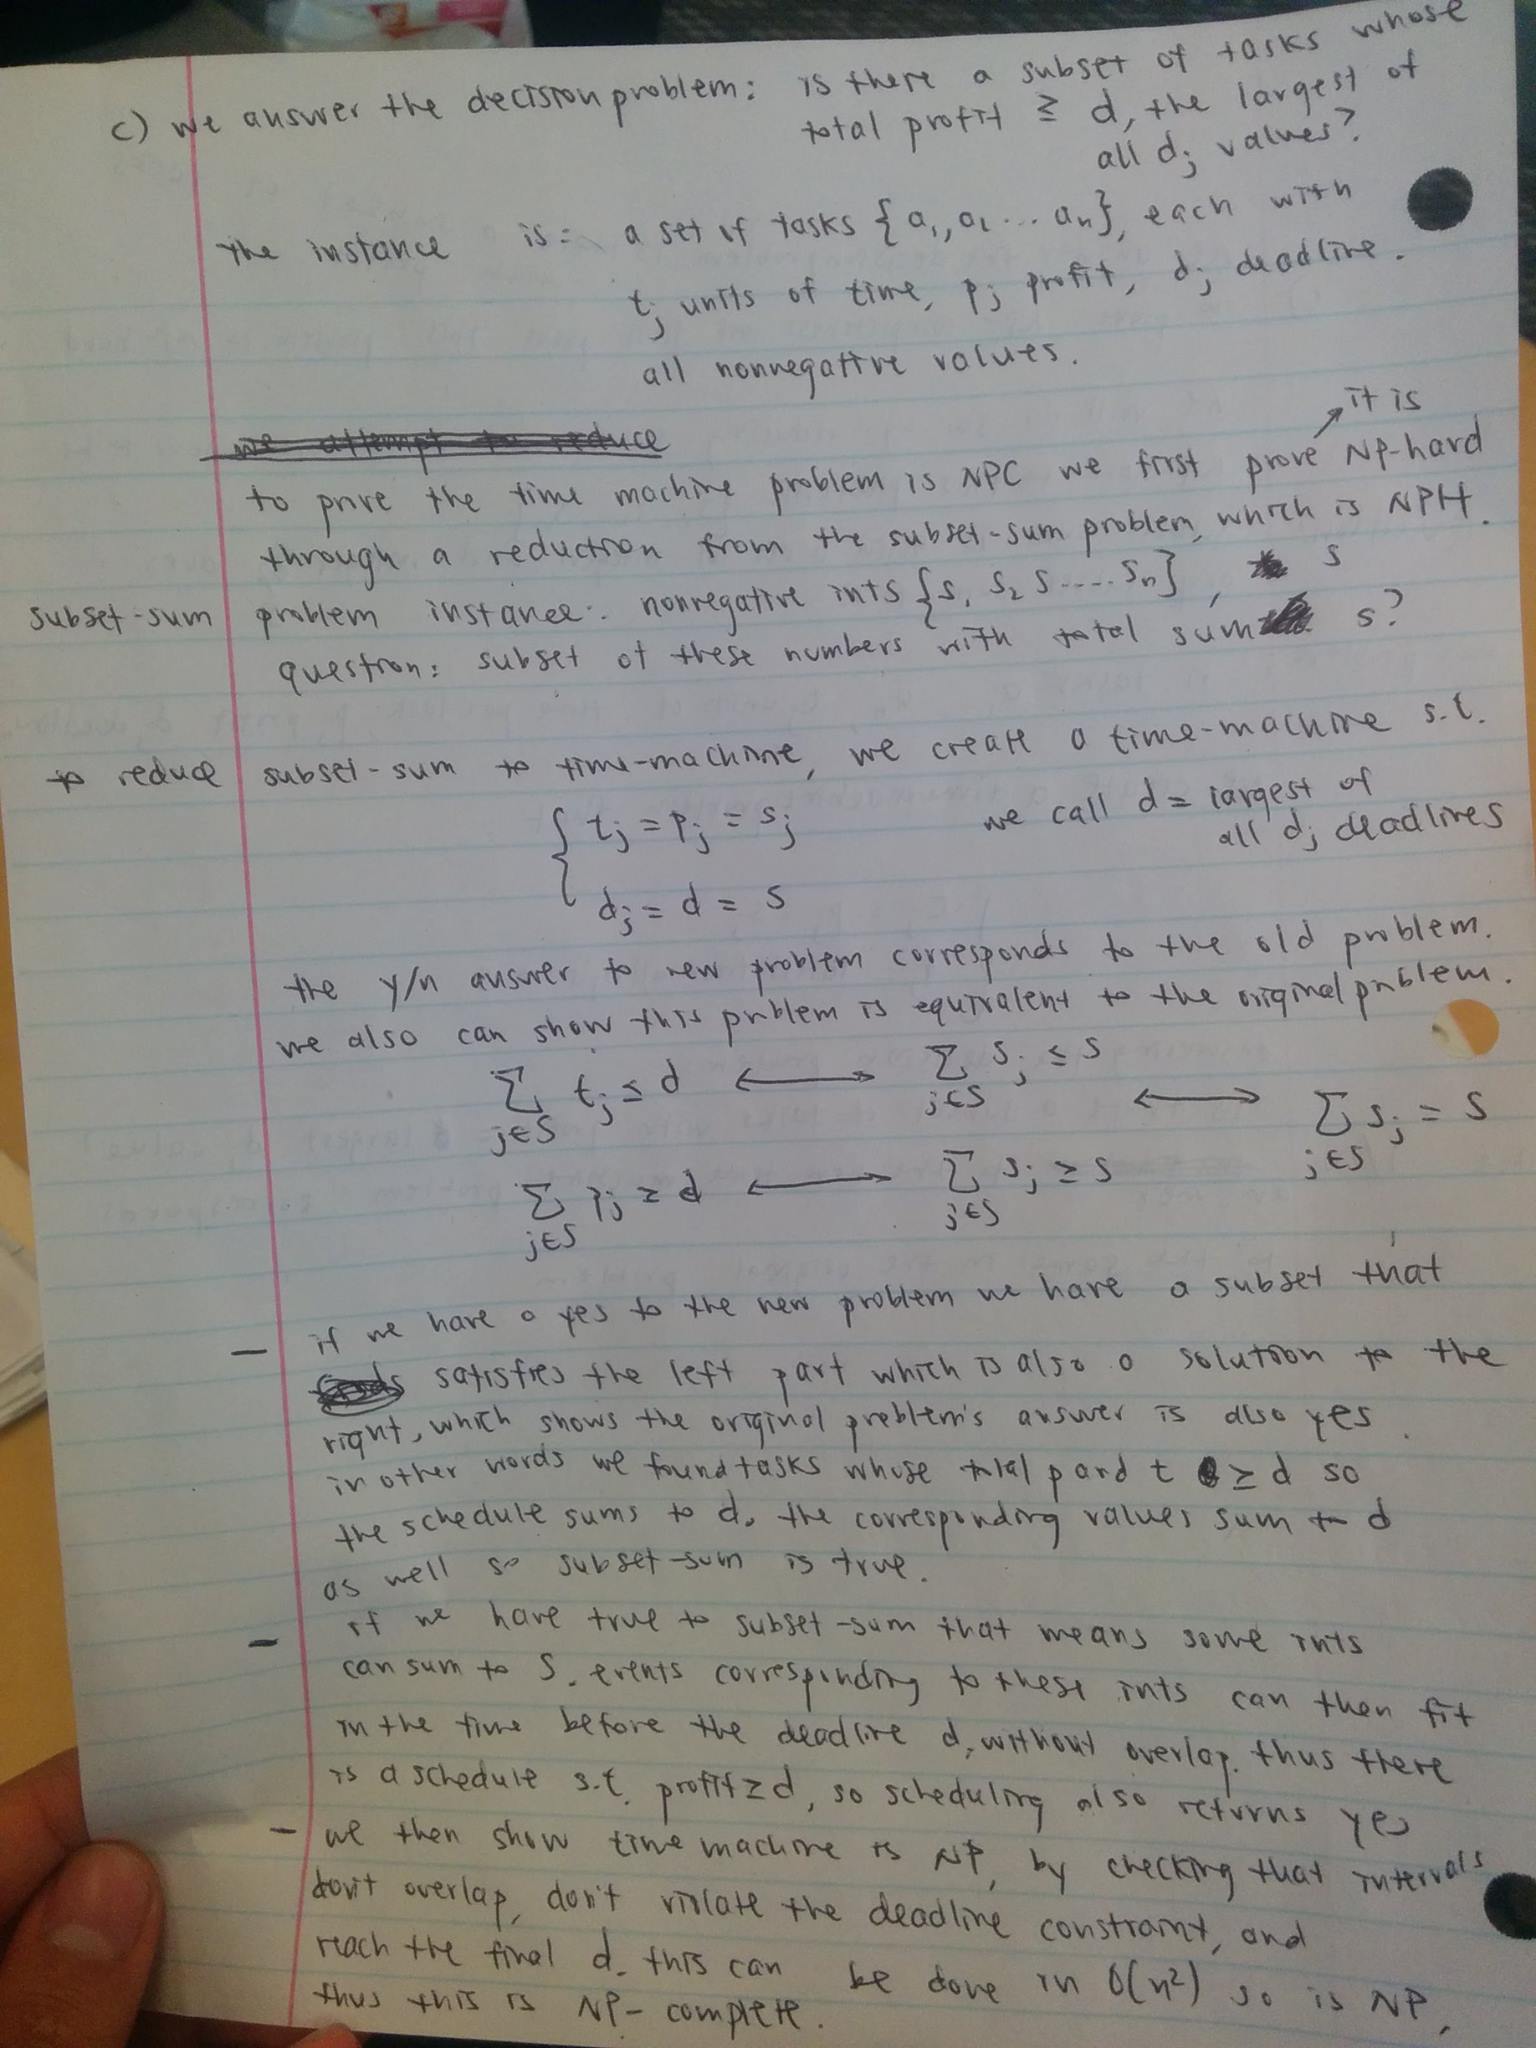 c) we answer the decision problem: is there a subset of tasks whose
total profit ≥ d, the largest of
all dj values?
the instance is: a set of tasks {a1, a2 ... an}, each with
tj units of time, pj profit, dj deadline.
all nonnegative values.
we attempt to reduce
it is
to prove the time machine problem is NPC we first prove NP-hard
through a reduction from the subset-sum problem, which is NPH.
subset-sum problem instance: nonnegative ints {s1 s2 s .... sn}, s
question: subset of these numbers with total sum s?
to reduce subset-sum to time-machine, we create a time-machine s.t.
{ tj = pj = sj we call d = largest of
all dj deadlines
dj = d = s
the y/n answer to new problem corresponds to the old problem.
we also can show this problem is equivalent to the original problem.
∑ j∈S tj ≤ d ⟷ ∑ j∈S sj ≤ s
⟷ ∑ j∈S sj = s
∑ j∈S pj ≥ d ⟷ ∑ j∈S sj ≥ s
— if we have a yes to the new problem we have a subset that
satisfies the left part which is also a solution to the
right, which shows the original problem's answer is also yes.
in other words we found tasks whose total p and t ≥ d so
the schedule sums to d. the corresponding values sum to d
as well so subset-sum is true.
— if we have true to subset-sum that means some ints
can sum to S. events corresponding to these ints can then fit
in the time before the deadline d, without overlap. thus there
is a schedule s.t. profit ≥ d, so scheduling also returns yes
— we then show time machine is NP, by checking that intervals
don't overlap, don't violate the deadline constraint, and
reach the final d. this can be done in O(n²) so is NP.
thus this is NP-complete.